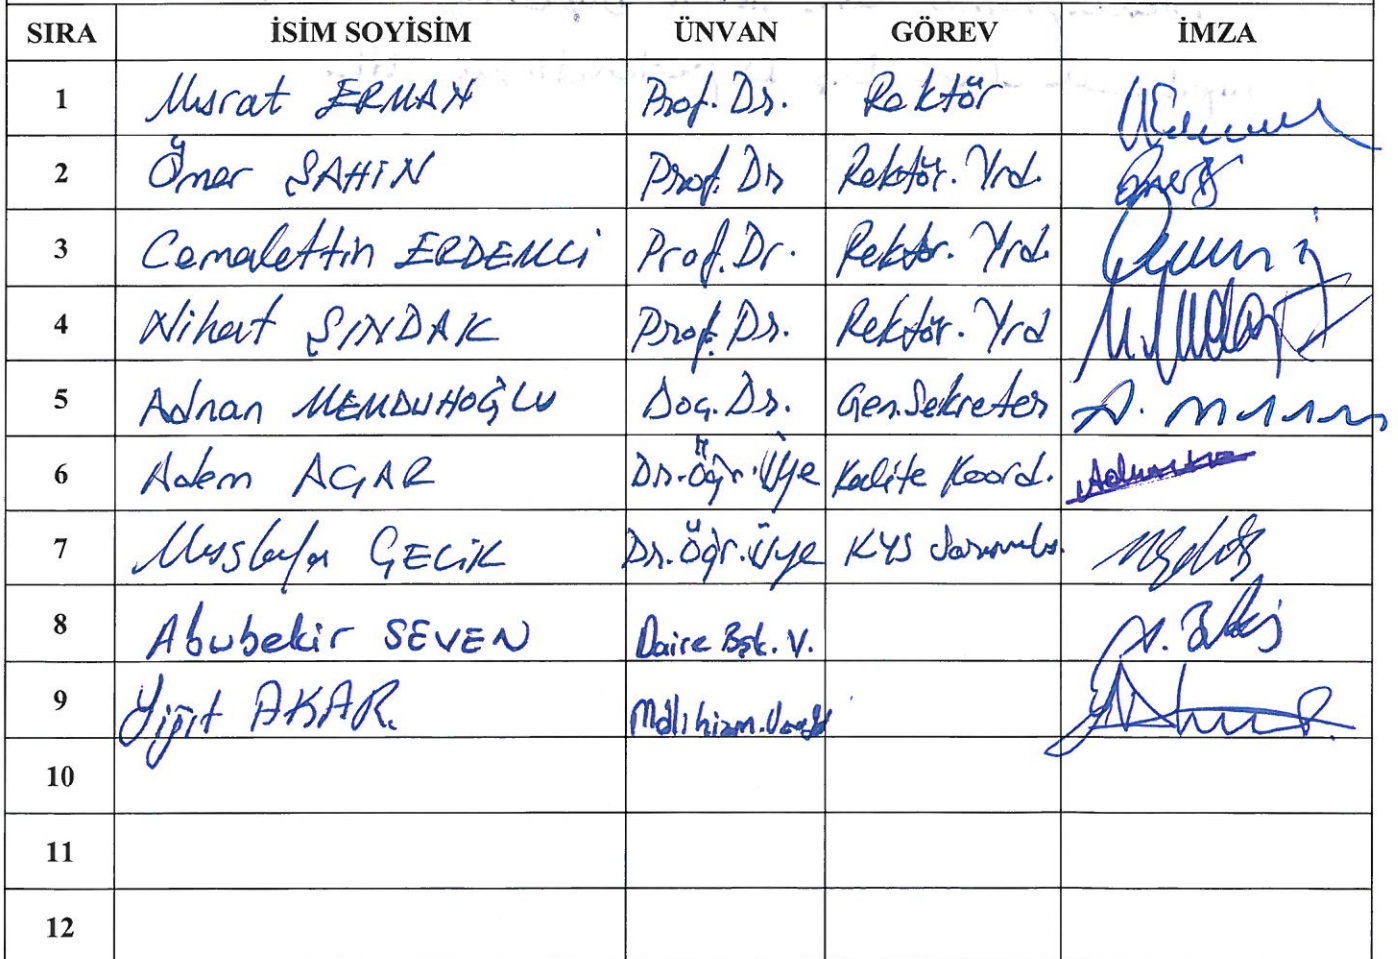 SIRA İSİM SOYİSİM ÜNVAN GÖREV İMZA
1 Murat ERMAN Prof. Dr. Rektör
2 Ömer ŞAHİN Prof. Dr Rektör. Yrd.
3 Cemalettin ERDEMCİ Prof. Dr. Rektör. Yrd.
4 Nihat ŞINDAK Prof. Dr. Rektör. Yrd
5 Adnan MEMDUHOĞLU Doç. Dr. Gen. Sekreter
6 Adem AÇAR Dr. Öğr. Üye Kalite Koord.
7 Mustafa GECİK Dr. Öğr. Üye KYS
8 Abubekir SEVEN Daire Bşk. V.
9 Yiğit AKAR. Mali hizm.
10
11
12